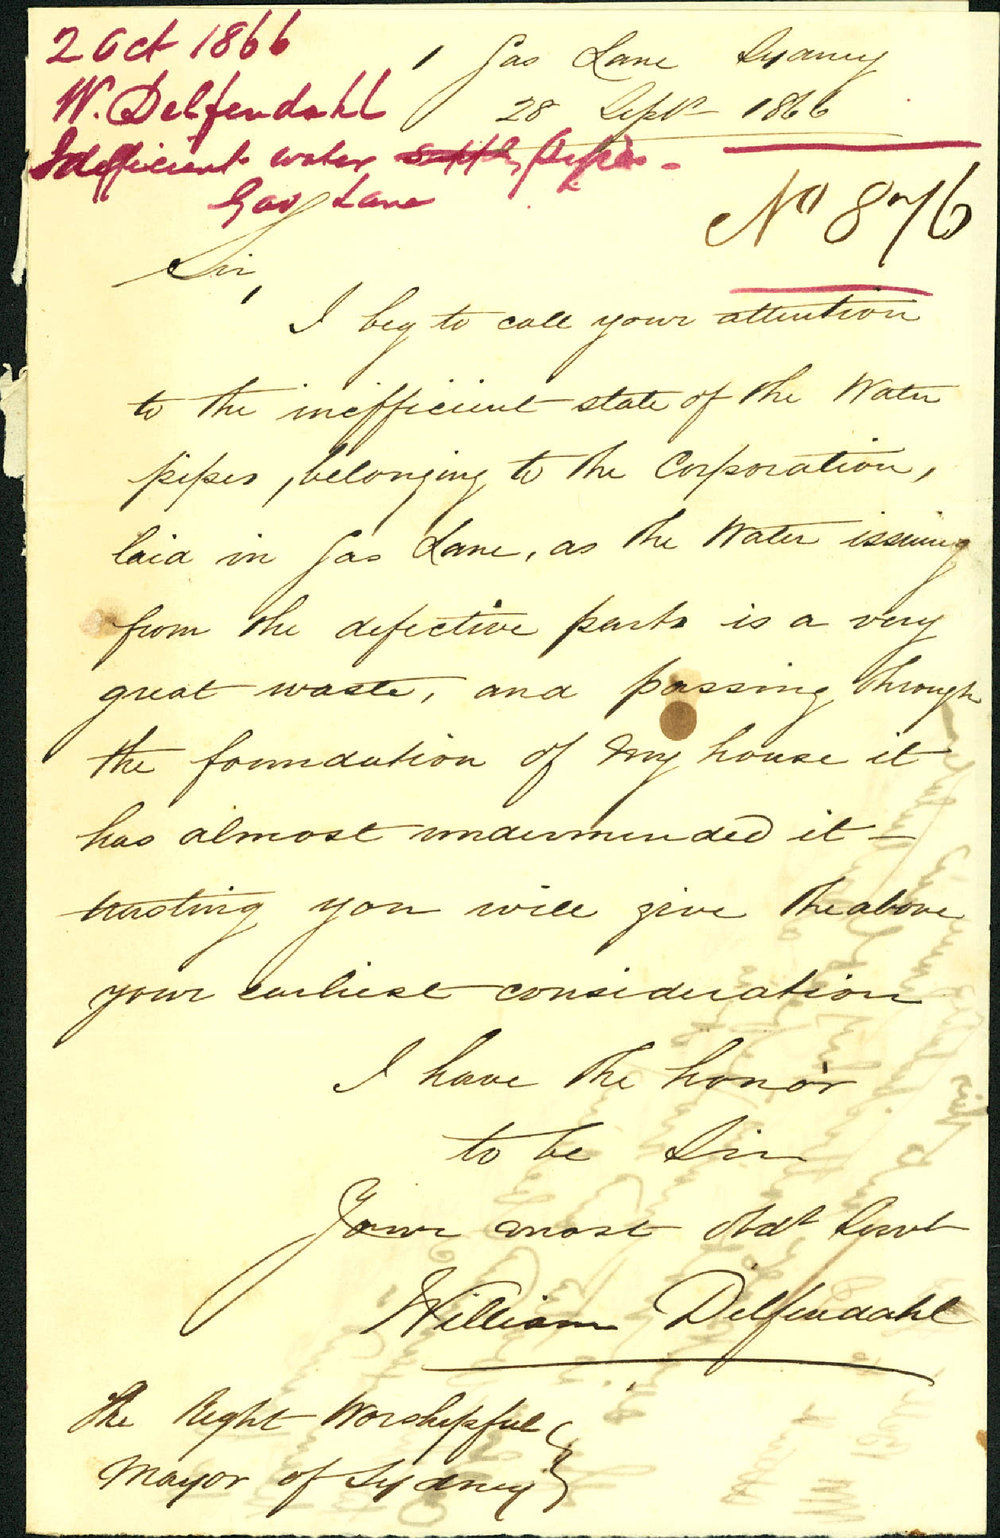 2 Oct 1866
W. Delfendahl
Inefficient water supply pipes -
Gas Lane
1 Gas Lane Sydney
28 Septr 1866
No 876
Sir,
I beg to call your attention
to the inefficient state of the Water
pipes, belonging to the Corporation,
laid in Gas Lane, as the Water issuing
from the defective parts is a very
great waste, and passing through
the foundation of my house it
has almost undermended it -
trusting you will give the above
your earliest consideration
I have the honor
to be Sir
Your most obdt Servt
William Delfendahl
The Right Worshipful
Mayor of Sydney